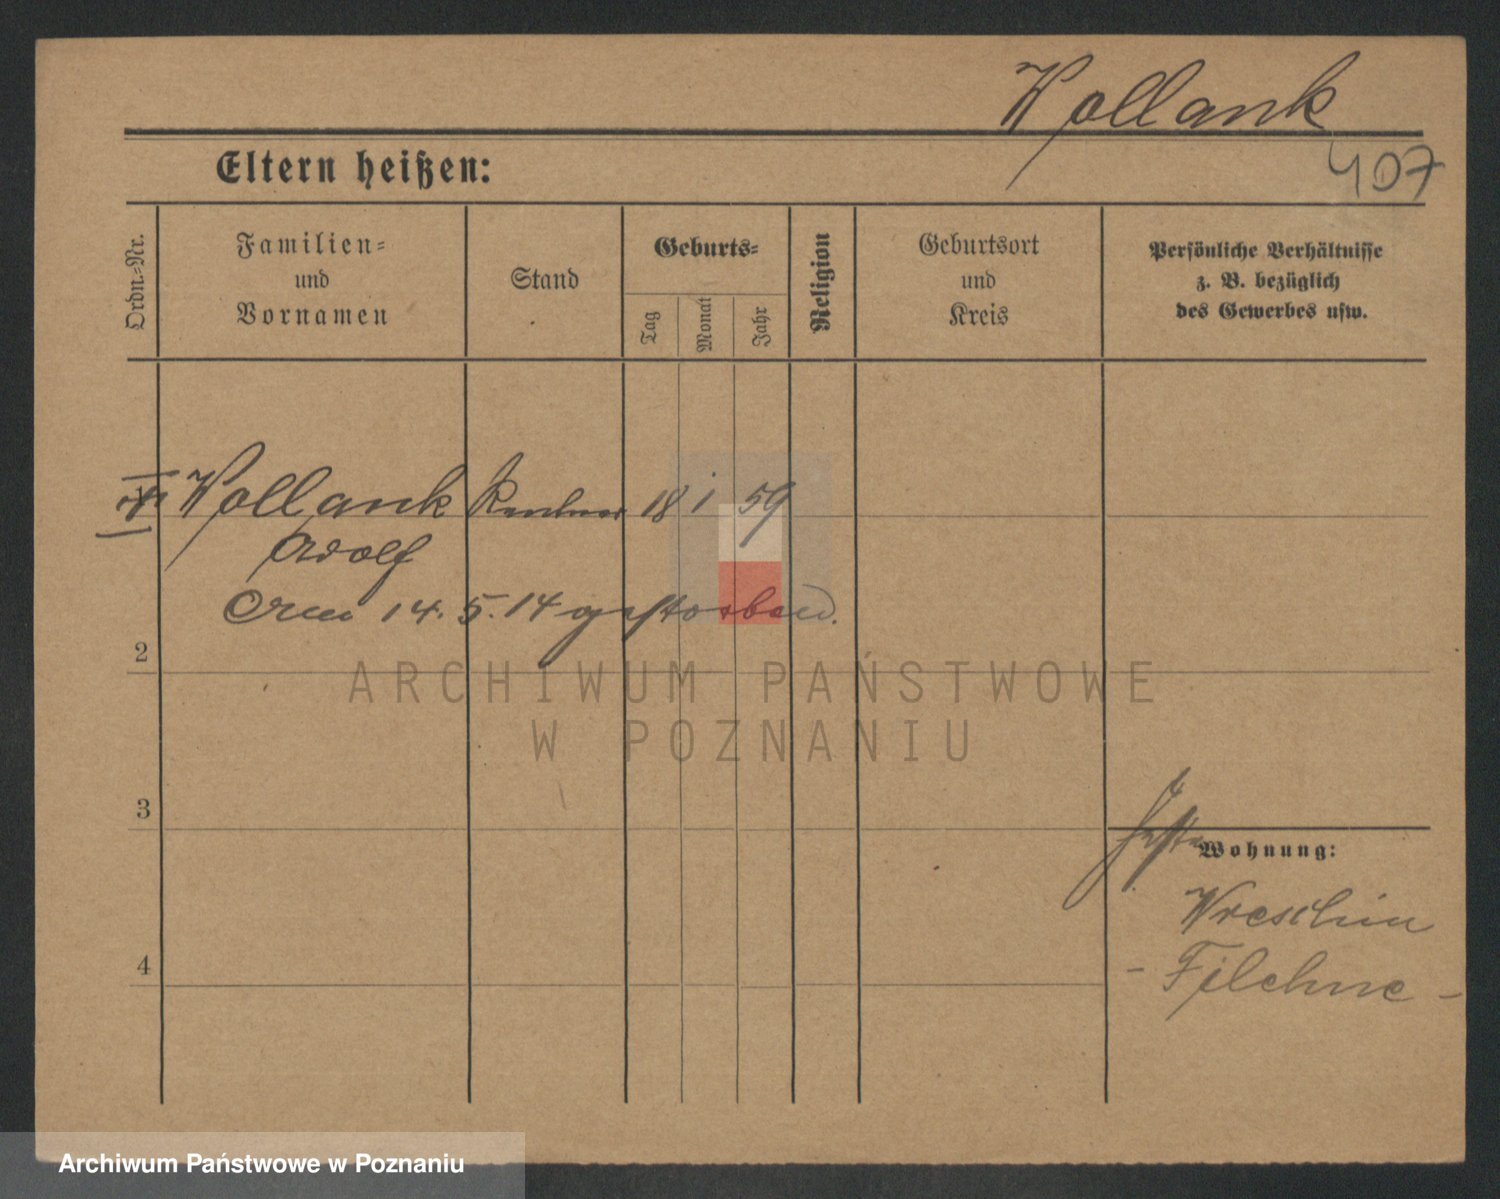 Wollank
407
Eltern heißen:
Ordn.-Nr.
Familien-
und
Vornamen
Stand
Geburts-
Tag
Monat
Jahr
Religion
Geburtsort
und
Kreis
Persönliche Verhältnisse
z. B. bezüglich
des Gewerbes usw.
Wollank Rentner 18 1 59
Adolf
Am 14. 5. 14 gestorben.
2
ARCHIWUM PAŃSTWOWE
W POZNANIU
3
Wohnung:
Wreschin
- Filehne -
4
Archiwum Państwowe w Poznaniu